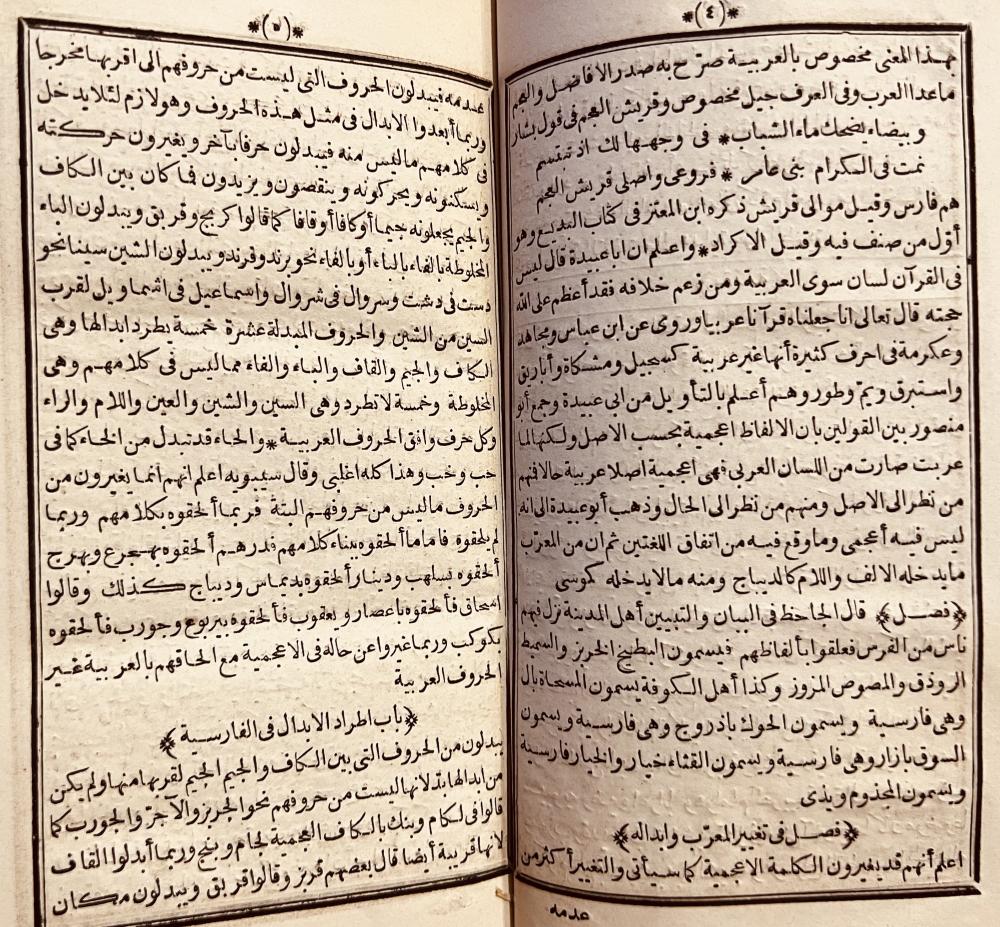 *(٤)*
بهذا المعنى مخصوص بالعربية صرّح به صدر الافاضل والعجم
ماعدا العرب وفى العرف جيل مخصوص وقريش العجم فى قول بشار
وبيضاء يضحك ماء الشباب * فى وجهها لك اذ تبتسم
نمت فى المكرام بنى عامر * فروعى واصلى قريش العجم
هم فارس وقيل موالى قريش ذكره ابن المعتز فى كتاب البديع وهو
أوّل من صنف فيه وقيل الاكراد * واعلم ان اباعبيدة قال ليس
فى القرآن لسان سوى العربية ومن زعم خلافه فقد أعظم على الله
حجته قال تعالى انا جعلناه قرآنا عربيا وروى عن ابن عباس ومجاهد
وعكرمة فى احرف كثيرة أنها غير عربية كسجيل ومشكاة وأباريق
واستبرق ويمّ وطور وهم أعلم بالتأويل من ابى عبيدة وجمع أبو
منصور بين القولين بان الالفاظ اعجمية بحسب الاصل ولكنها لما
عربت صارت من اللسان العربى فهى اعجمية اصلا عربية حالا فنهم
من نظر الى الاصل ومنهم من نظر الى الحال وذهب أبو عبيدة الى انه
ليس فيه أعجمى وماوقع فيه من اتفاق اللغتين ثم ان من المعرّب
مايدخله الالف واللام كالديباج ومنه مالايدخله كموسى
﴿فصل﴾ قال الجاحظ فى البيان والتبيين أهل المدينة نزل فيهم
ناس من الفرس فعلقوا بألفاظهم فيسمون البطيخ الخربز والسميط
الروذق والمصوص المزوز وكذا أهل الكوفة يسمون المسحاة بال
وهى فارسية ويسمون الحوك باذروج وهى فارسية ويسمون
السوق بازار وهى فارسية ويسمون القثاء خيار والخيار فارسية
ويسمون المجذوم ويذى
﴿فصل فى تغيير المعرّب وابداله﴾
اعلم أنهم قد يغيرون الكلمة الاعجمية كما سيأتى والتغيير أكثر من
عدمه
*(٥)*
عدمه فيبدلون الحروف التى ليست من حروفهم الى اقربها مخرجا
وربما أبعدوا الابدال فى مثل هذه الحروف وهو لازم لئلا يدخل
فى كلامهم ماليس منه فيبدلون حرفا بآخر ويغيرون حركته
ويسكنونه ويحركونه وينقصون ويزيدون فما كان بين الكاف
والجيم يجعلونه جيما أو كافا أو قافا كما قالوا كربج وقربق ويبدلون الباء
المخلوطة بالفاء بالباء أو بالفاء نحو برند وفرند ويبدلون الشين سينا نحو
دست فى دشت وسروال فى شروال واسماعيل فى اشماويل لقرب
السين من الشين والحروف المبدلة عشرة خمسة يطرد ابدالها وهى
الكاف والجيم والقاف والباء والفاء مماليس فى كلامهم وهى
المخلوطة وخمسة لاتطرد وهى السين والشين والعين واللام والراء
وكل حرف وافق الحروف العربية * والحاء قد تبدل من الخاء كما فى
حب وخب وهذا كله اغلبى وقال سيبويه اعلم انهم انما يغيرون من
الحروف ماليس من حروفهم البتة فربما ألحقوه بكلامهم وربما
لم يلحقوه فاما ما ألحقوه ببناء كلامهم فدرهم ألحقوه بهجرع وبهرج
ألحقوه بسلهب ودينار ألحقوه بديماس وديباج كذلك وقالوا
اسحاق فألحقوه باعصار ويعقوب فألحقوه بيربوع وجورب فألحقوه
بكوكب وربما غيروا عن حاله فى الاعجمية مع الحاقهم بالعربية غير
الحروف العربية
﴿باب اطراد الابدال فى الفارسية﴾
يبدلون من الحروف التى بين الكاف والجيم الجيم لقربها منها ولم يكن
من ابدالها بدّ لانها ليست من حروفهم نحو الجربز والآجرّ والجورب كما
قالوا فى لكام وبنك بالكاف العجمية لجام وبنج وربما أبدلوا القاف
لانها قريبة أيضا قال بعضهم قربز وقالوا قربق ويبدلون مكان